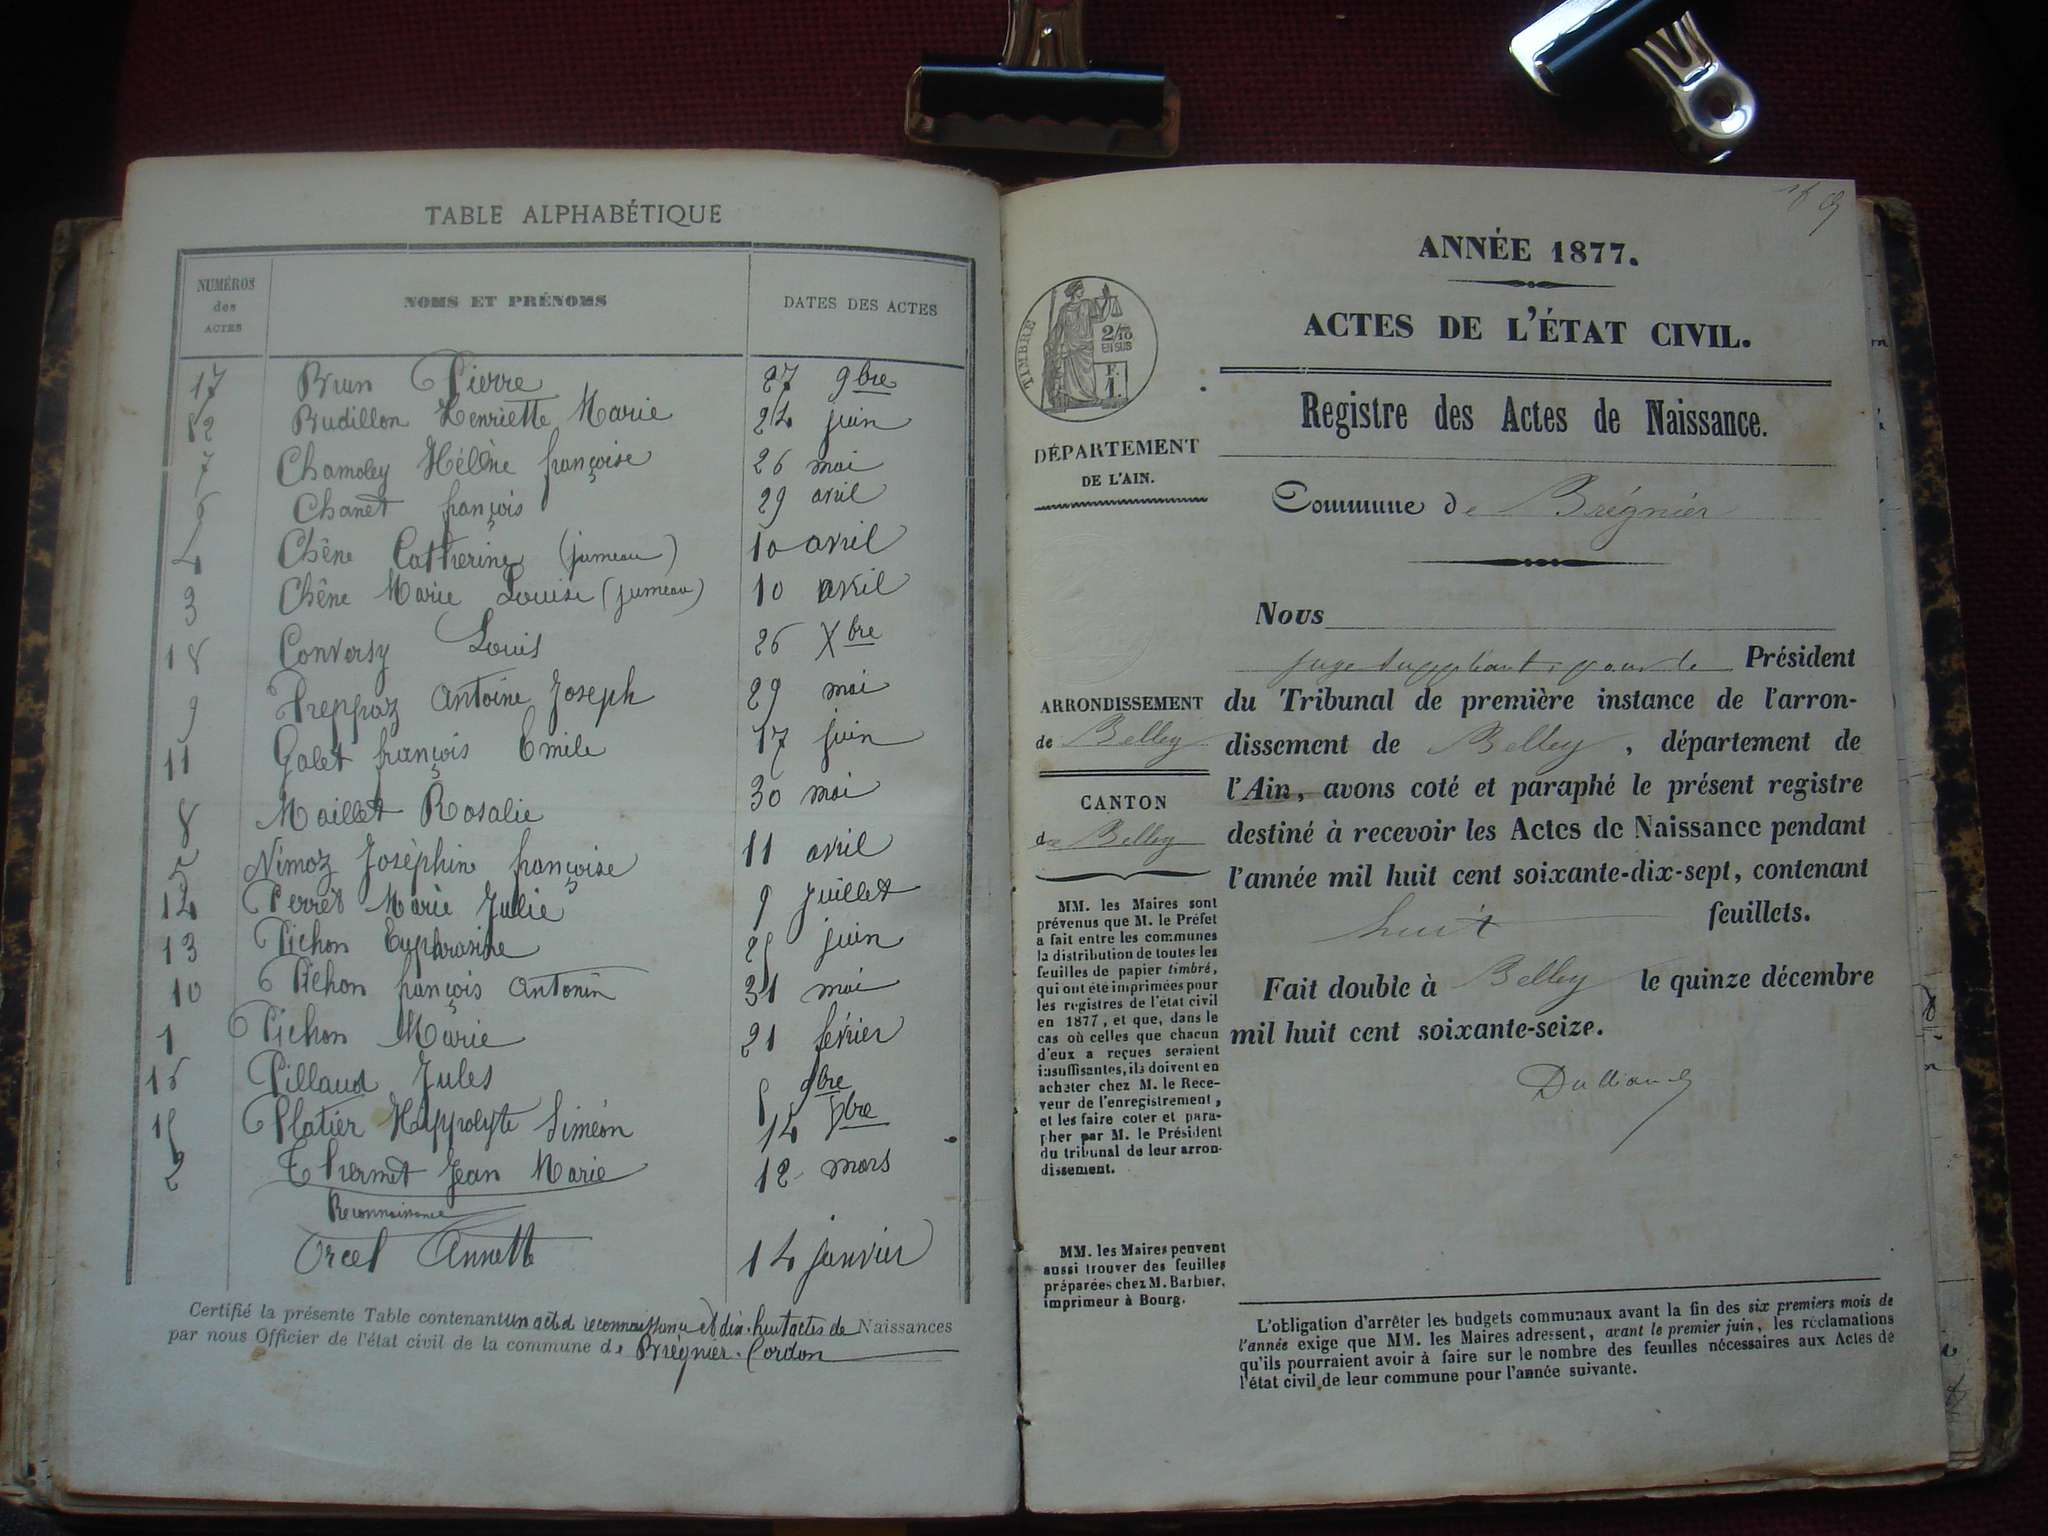 TABLE ALPHABÉTIQUE
NUMÉROS des ACTES
NOMS ET PRÉNOMS
DATES DES ACTES
17 Brun Pierre 27 9bre
12 Budillon Henriette Marie 24 juin
7 Chamoley Hélène françoise 26 mai
6 Chanet françois 29 avril
4 Chêne Catherine (jumeau) 10 avril
3 Chêne Marie Louise (jumeau) 10 avril
18 Conversy Louis 26 Xbre
9 Freppaz Antoine Joseph 29 mai
11 Galet françois Emile 17 juin
8 Maillet Rosalie 30 mai
5 Nimoz Joséphine françoise 11 avril
14 Perret Marie Julie 9 Juillet
13 Pichon Euphrasine juin
10 Pichon françois Antonin 31 mai
1 Pichon Marie 21 février
16 Pillaud Jules 9bre
15 Platier Hyppolyte Siméon 14
2 Thermet Jean Marie 12 mars
Reconnaissance
Orcel Annette 14 janvier
Certifié la présente Table contenant un acte de reconnaissance et dix-huit actes de Naissances
par nous Officier de l'état civil de la commune de Brégnier-Cordon
ANNÉE 1877.
ACTES DE L'ÉTAT CIVIL.
Registre des Actes de Naissance.
TIMBRE
2/10
EN SUS
F.
1.
DÉPARTEMENT
DE L'AIN.
Commune de Brégnier
Nous
juge suppléant, pour le Président
du Tribunal de première instance de l'arron-
dissement de Belley, département de
l'Ain, avons coté et paraphé le présent registre
destiné à recevoir les Actes de Naissance pendant
l'année mil huit cent soixante-dix-sept, contenant
huit feuillets.
Fait double à Belley le quinze décembre
mil huit cent soixante-seize.
ARRONDISSEMENT
de Belley
CANTON
de Belley
MM. les Maires sont
prévenus que M. le Préfet
a fait entre les communes
la distribution de toutes les
feuilles de papier timbré,
qui ont été imprimées pour
les registres de l'état civil
en 1877, et que, dans le
cas où celles que chacun
d'eux a reçues seraient
insuffisantes, ils doivent en
acheter chez M. le Rece-
veur de l'enregistrement,
et les faire coter et para-
pher par M. le Président
du tribunal de leur arron-
dissement.
MM. les Maires peuvent
aussi trouver des feuilles
préparées chez M. Barbier,
imprimeur à Bourg.
L'obligation d'arrêter les budgets communaux avant la fin des six premiers mois de
l'année exige que MM. les Maires adressent, avant le premier juin, les réclamations
qu'ils pourraient avoir à faire sur le nombre des feuilles nécessaires aux Actes de
l'état civil de leur commune pour l'année suivante.